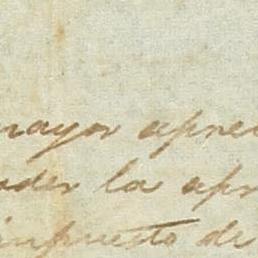 mayor apre
oder la apr
impuesto de